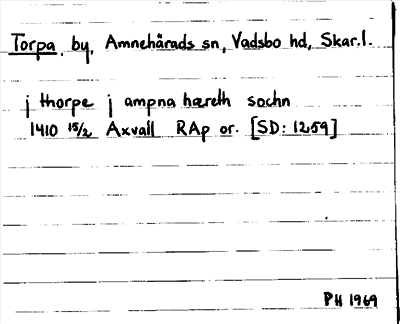 Torpa, by, Amnehårads sn, Vadsbo hd, Skar.l.
j thorpe j ampna hæreth sochn
1410 15/2 Axvall RAp or. [SD: 1259]
PH 1969